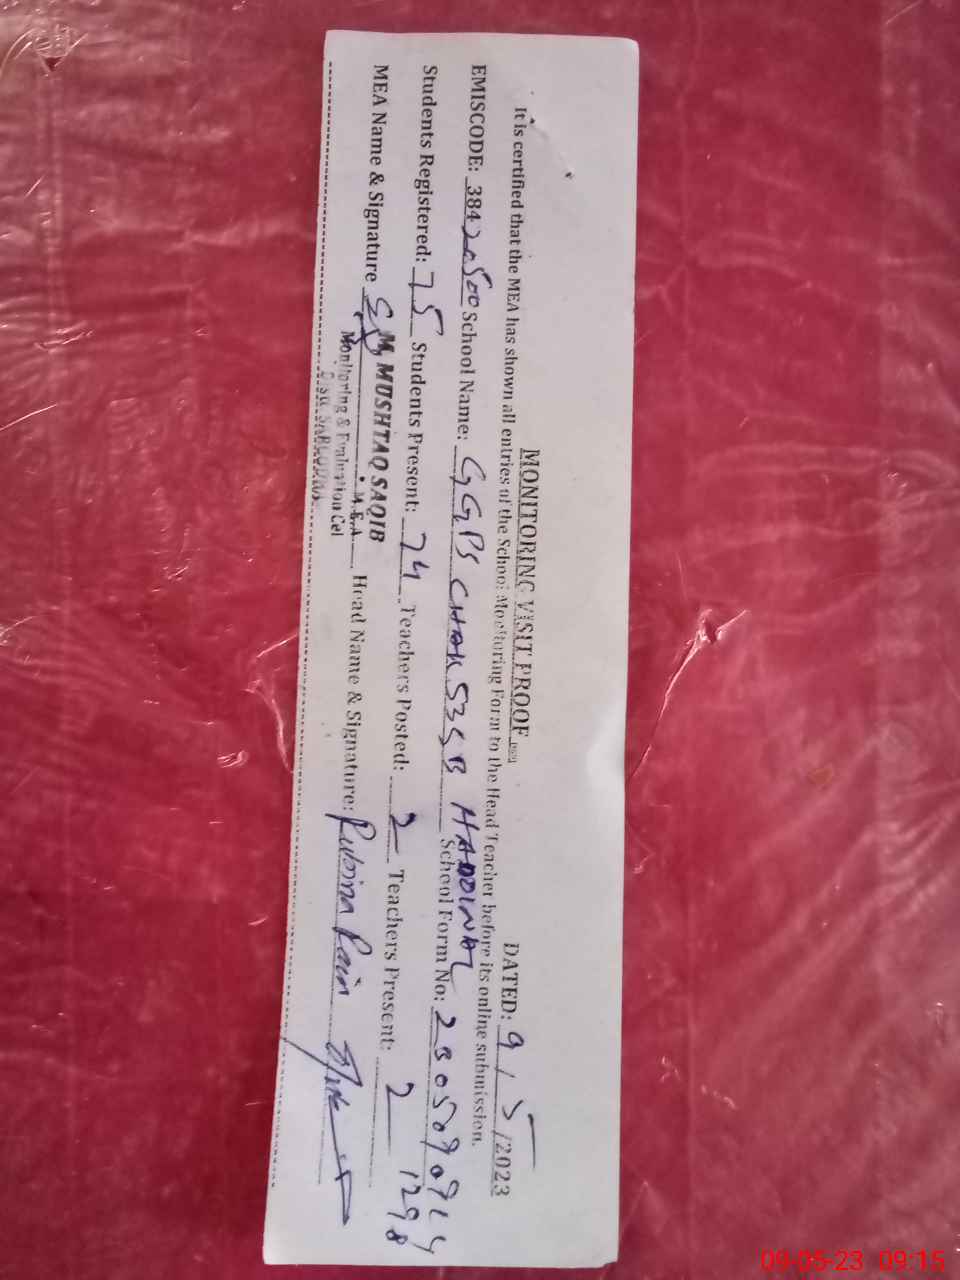 MONITORING VISIT PROOF
DATED: 9/5/2023
It is certified that the MEA has shown all entries of the School Monitoring Form to the Head Teacher before its online submission.
EMISCODE: 38420500 School Name: GGPS CHAK 53 SB HADDINAL School Form No:
1298
Students Registered: 75 Students Present: 74 Teachers Posted: 2 Teachers Present: 2
MEA Name & Signature Head Name & Signature: Rubina
M. MUSHTAQ SAQIB
M.E.A
Monitoring & Evaluation Cel
09-05-23 09:15